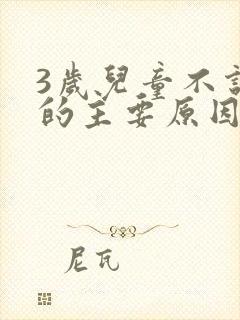 3歲兒童不
的主要原因
尼瓦